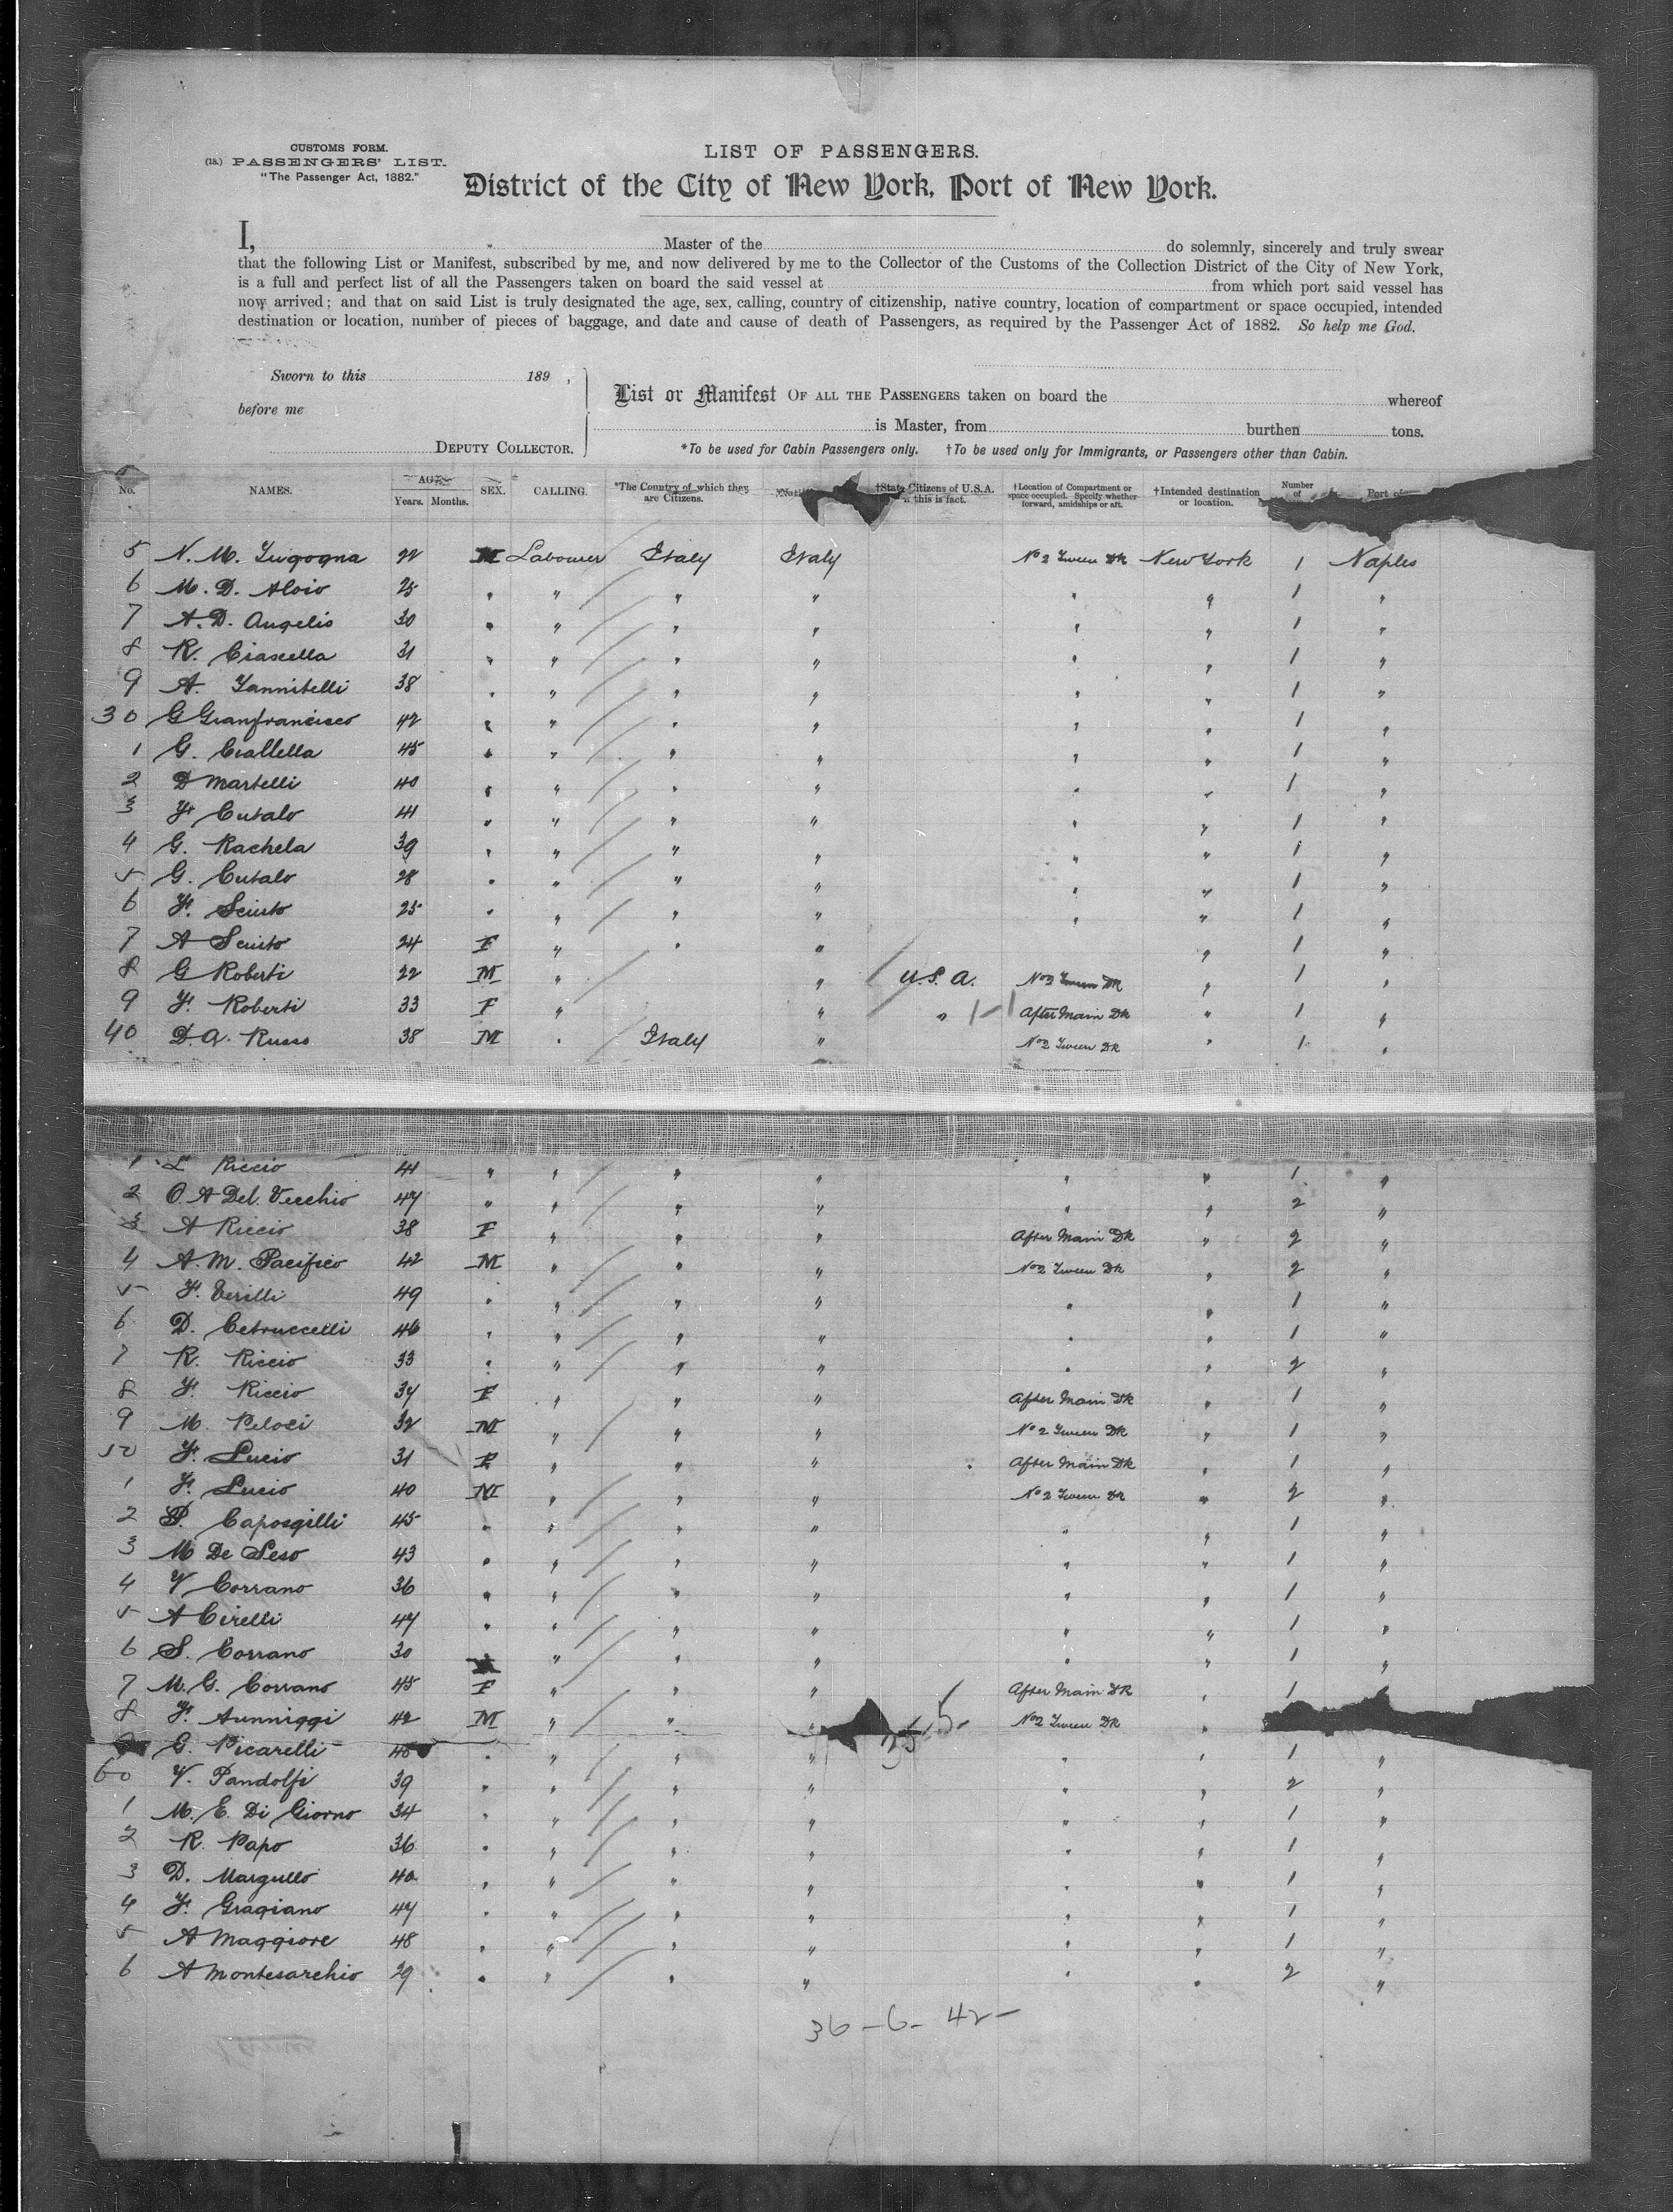 CUSTOMS FORM.
(18.) PASSENGERS' LIST.
"The Passenger Act, 1882."
LIST OF PASSENGERS.
District of the City of New York, Port of New York.
I, Master of the do solemnly, sincerely and truly swear
that the following List or Manifest, subscribed by me, and now delivered by me to the Collector of the Customs of the Collection District of the City of New York,
is a full and perfect list of all the Passengers taken on board the said vessel at from which port said vessel has
now arrived; and that on said List is truly designated the age, sex, calling, country of citizenship, native country, location of compartment or space occupied, intended
destination or location, number of pieces of baggage, and date and cause of death of Passengers, as required by the Passenger Act of 1882. So help me God.
Sworn to this 189 ,
before me
DEPUTY COLLECTOR.
List or Manifest OF ALL THE PASSENGERS taken on board the whereof
is Master, from burthen tons.
*To be used for Cabin Passengers only. †To be used only for Immigrants, or Passengers other than Cabin.
No. NAMES. AGE Years. Months. SEX. CALLING. *The Country of which they are Citizens. †State Citizens of U.S.A. this is fact. †Location of Compartment or space occupied. Specify whether forward, amidships or aft. †Intended destination or location. Number of Port of
5 N. M. 22 M Labourer Italy Italy No 2 Tween Dk New York 1 Naples
6 M. D. Aloio 25 " " " " " " 1 "
7 A. D. Angelis 30 " " " " " " 1 "
8 R. Ciascella 31 " " " " " " 1 "
9 A. Iannitelli 38 " " " " " " 1 "
30 G Gianfrancisco 42 " " " " " " 1 "
1 G. Ciallella 45 " " " " " " 1 "
2 D Martelli 40 " " " " " " 1 "
3 F. Cutalo 41 " " " " " " 1 "
4 G. Rachela 39 " " " " " " 1 "
5 G. Cutalo 28 " " " " " " 1 "
6 F. Sciuto 25 " " " " " " 1 "
7 A Sciuto 24 F " " " " 1 "
8 G Roberti 22 M " " U.S.A. No 2 Tween Dk " 1 "
9 F. Roberti 33 F " " " After Main Dk " 1 "
40 D. A. Russo 38 M " Italy " No 2 Tween Dk " 1 "
1 L Riccio 41 " " " " " " 1 "
2 O. A Del. Vecchio 47 " " " " " " 2 "
3 A Riccio 38 F " " " After Main Dk " 2 "
4 A. M. Pacifico 42 M " " " No 2 Tween Dk " 2 "
5 F. Verilli 49 " " " " " " 1 "
6 D. Cetruccelli 46 " " " " " " 1 "
7 R. Riccio 33 " " " " " " 2 "
8 F. Riccio 34 F " " " After Main Dk " 1 "
9 M. Peloci 32 M " " " No 2 Tween Dk " 1 "
50 F. Lucio 31 F " " " After Main Dk " 1 "
1 F. Lucio 40 M " " " No 2 Tween Dk " 2 "
2 P. Caposgilli 45 " " " " " " 1 "
3 M De Seso 43 " " " " " " 1 "
4 V Corrano 36 " " " " " " 1 "
5 A Cirelli 47 " " " " " " 1 "
6 S. Corrano 30 " " " " " 1 "
7 M. G. Corrano 45 F " " " After Main Dk " 1 "
8 F. Aunniggi 42 M " " " No 2 Tween Dk "
9 E. Picarelli 45 " " " " " " 1 "
60 V. Pandolfi 39 " " " " " " 2 "
1 M. E. Di Giorno 34 " " " " " " 1 "
2 R. Papo 36 " " " " " " 1 "
3 D. Margullo 40 " " " " " " 1 "
4 F. Gragiano 47 " " " " " " 1 "
5 A Maggiore 48 " " " " " " 1 "
6 A Montesarchio 29 " " " " " " 2 "
36 - 6 - 42 -